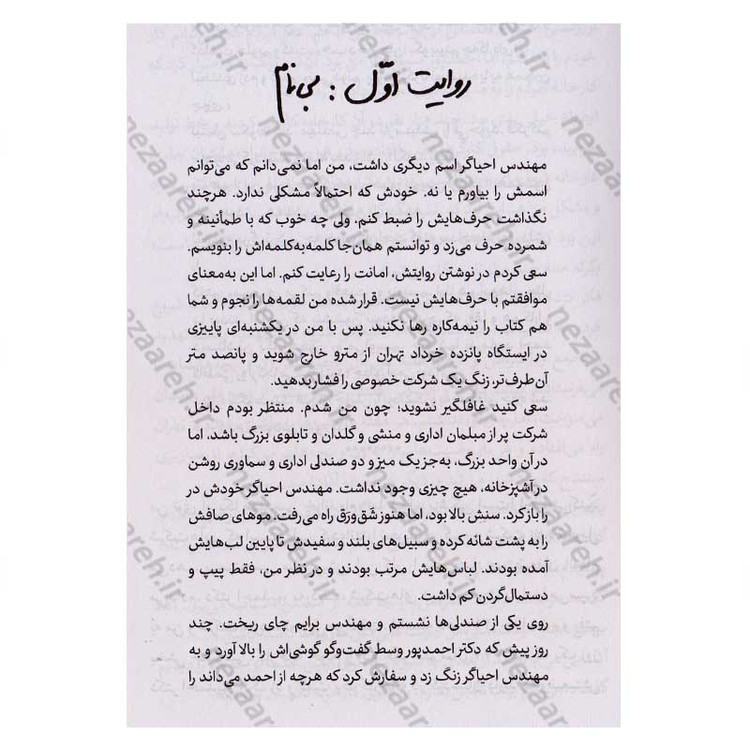 روایت اوّل : بی‌نام
مهندس احیاگر اسم دیگری داشت، من اما نمی‌دانم که می‌توانم
اسمش را بیاورم یا نه. خودش که احتمالاً مشکلی ندارد. هرچند
نگذاشت حرف‌هایش را ضبط کنم، ولی چه خوب که با طمأنینه و
شمرده حرف می‌زد و توانستم همان‌جا کلمه‌به‌کلمه‌اش را بنویسم.
سعی کردم در نوشتن روایتش، امانت را رعایت کنم. اما این به‌معنای
موافقتم با حرف‌هایش نیست. قرار شده من لقمه‌ها را نجوم و شما
هم کتاب را نیمه‌کاره رها نکنید. پس با من در یکشنبه‌ای پاییزی
در ایستگاه پانزده خرداد تهران از مترو خارج شوید و پانصد متر
آن‌طرف‌تر، زنگ یک شرکت خصوصی را فشار بدهید.
سعی کنید غافلگیر نشوید؛ چون من شدم. منتظر بودم داخل
شرکت پر از مبلمان اداری و منشی و گلدان و تابلوی بزرگ باشد، اما
در آن واحد بزرگ، به‌جز یک میز و دو صندلی اداری و سماوری روشن
در آشپزخانه، هیچ چیزی وجود نداشت. مهندس احیاگر خودش در
را باز کرد. سنش بالا بود، اما هنوز شَق‌ورَق راه می‌رفت. موهای صافش
را به پشت شانه کرده و سبیل‌های بلند و سفیدش تا پایین لب‌هایش
آمده بودند. لباس‌هایش مرتب بودند و در نظر من، فقط پیپ و
دستمال‌گردن کم داشت.
روی یکی از صندلی‌ها نشستم و مهندس برایم چای ریخت. چند
روز پیش که دکتر احمدپور وسط گفت‌وگو گوشی‌اش را بالا آورد و به
مهندس احیاگر زنگ زد و سفارش کرد که هرچه از احمد می‌داند را
nezaareh.ir